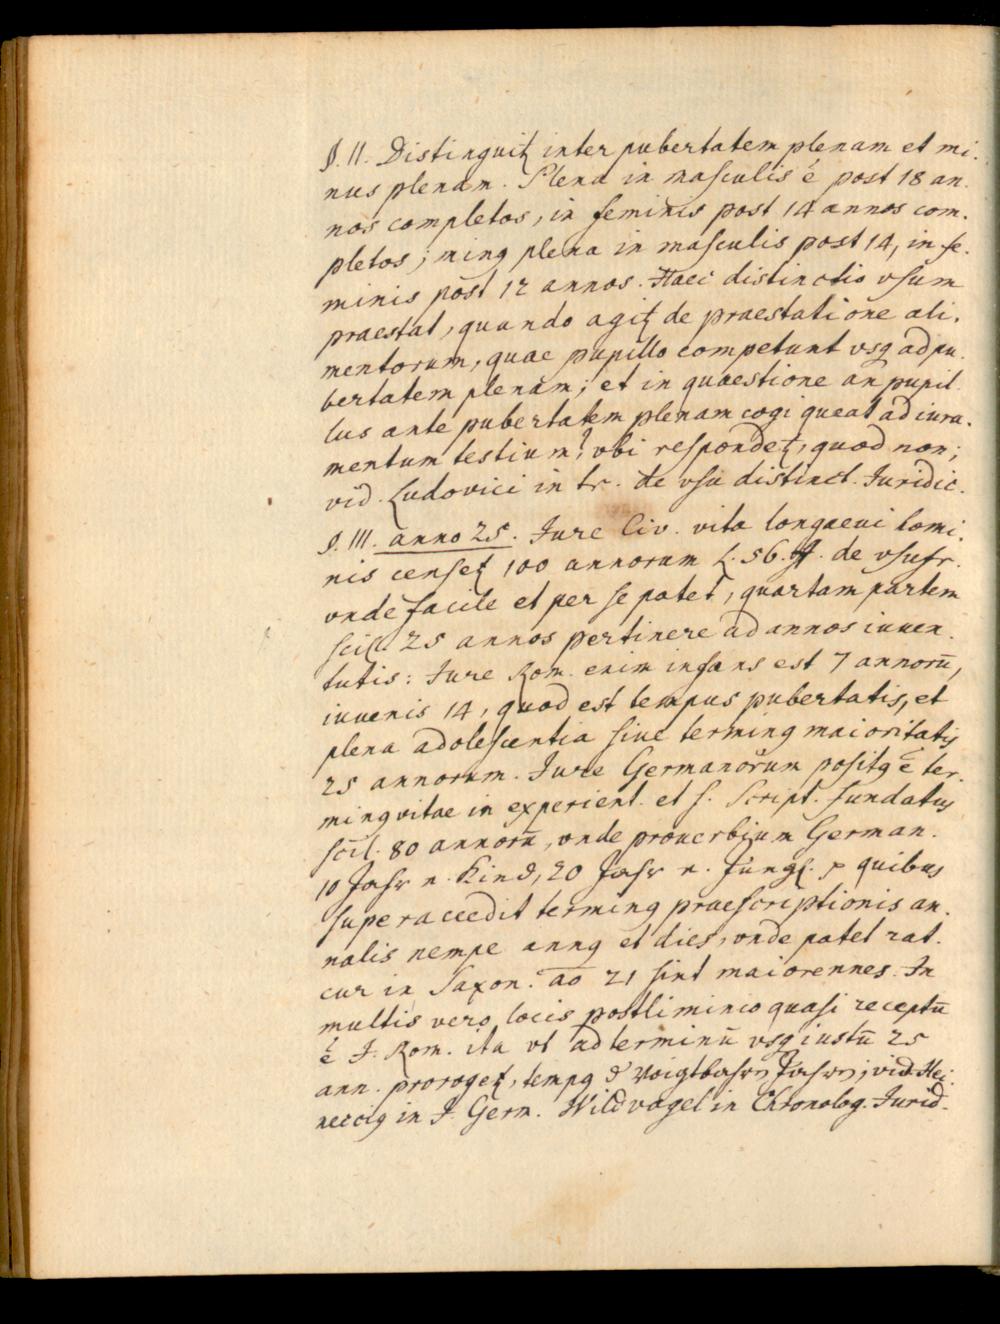 §. II. Distinguitꝭ inter pubertatem plenam et mi-
nus plenam. Plena in masculis ē post 18 an-
nos completos, in feminis post 14 annos com-
pletos; minꝯ plena in masculis post 14, in fe-
minis post 12 annos. Haec distinctio vsum
praestat, quando agitꝭ de praestatione ali-
mentorum, quae pupillo competunt vsqꝫ ad pu-
bertatem plenam; et in quaestione an pupil-
lus ante pubertatem plenam cogi queat ad iura-
mentum testium? vbi respondetꝭ, quod non;
vid. Ludovici in tr. de vsu distinct. Juridic.
§. III. anno 25. Jure Civ. vita longaeui homi-
nis censetꝭ 100 annorum L. 56. ff. de vsufr.
vnde facile et per se patet, quartam partem
scil. 25 annos pertinere ad annos iuuen-
tutis: Jure Rom. enim infans est 7 annorū,
iuvenis 14, quod est tempus pubertatis, et
plena adolescentia siue terminꝯ maioritatis
25 annorum. Jure Germanorum positꝯ ē ter-
minꝯ vitae in experient. et S. Script. fundatus
scil. 80 annorū, vnde prouerbium German.
10 Jahr n. Kind, 20 Jahr n. Jüngl. quibus
super accedit terminꝯ praescriptionis an-
nalis nempe annꝯ et dies, vnde patet rat.
cur in Saxon. ao 21 sint maiorennes. In
multis vero locis postliminio quasi receptū
ē J. Rom. ita vt ad terminū vsqꝫ iustū 25
ann. prorogetꝭ, tempꝯ Jahren; vid. Hei-
neccius in J. Germ. Wildvogel in Chronolog. Jurid.